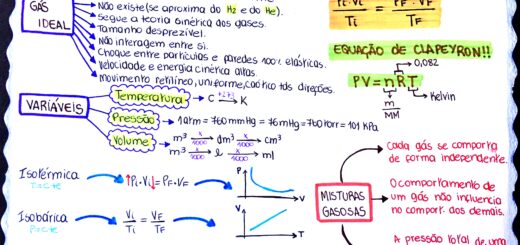 GÁS
IDEAL
Não existe (se aproxima do H₂ e do He).
Segue a teoria cinética dos gases.
Tamanho desprezível.
Não interagem entre si.
Choque entre partículas e paredes 100% elásticas.
Velocidade e energia cinética altas.
Movimento retilíneo, uniforme, caótico tds direções.
Pi.Vi = PF.VF
Ti TF
EQUAÇÃO DE CLAPEYRON!!
0,082
PV=nRT
m
MM
Kelvin
VARIÁVEIS
Temperatura → C +273 → K
Pressão → 1atm = 760 mmHg = 76mHg = 760 torr = 101 KPa
Volume → m³ x 1000 → dm³ x 1000 → cm³
m³ x 1000 → l x 1000 → ml
Isotérmica
T=cte
Pi.Vi = PF.VF
P
V
Isobárica
P=cte
Vi = VF
Ti TF
V
T
MISTURAS
GASOSAS
Cada gás se comporta
de forma independente.
O comportamento de
um gás não influencia
no comport. dos demais.
A pressão total de uma